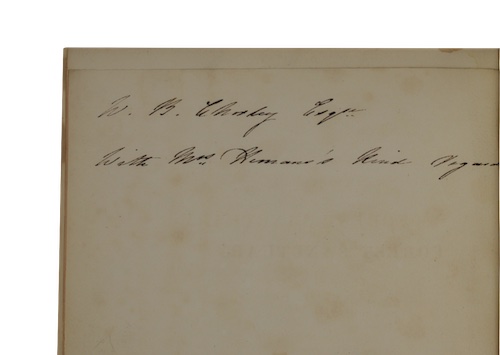 W. B. Chorley Esqr.
With Mrs. Hemans's kind regard